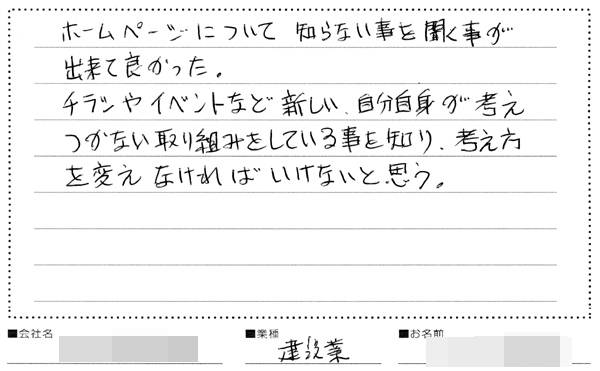 ホームページについて 知らない事を聞く事が
出来て良かった。
チラシやイベントなど新しい、自分自身が考え
つかない取り組みをしている事を知り、考え方
を変えなければいけないと思う。
■会社名 ■業種 ■お名前
建設業